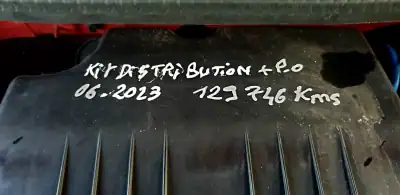 Kit DISTRIBUTION + P.O
06-2023 129 746 Kms